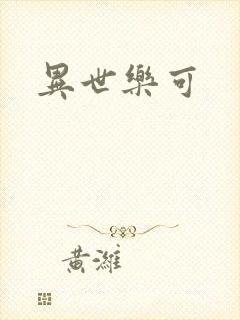 異世樂可
黃濰